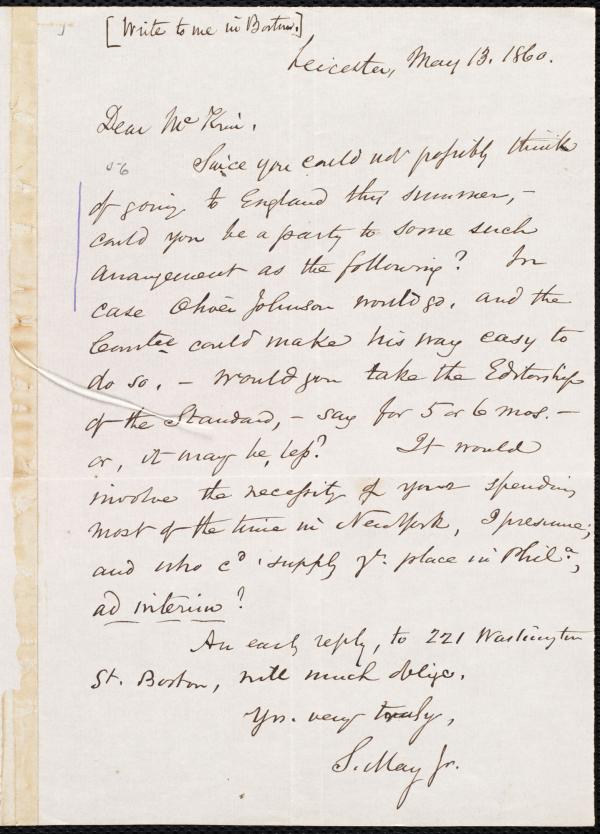 [Write to me in Boston.]
Leicester, May 13. 1860.
Dear McKim.
56
Since you could not possibly think
of going to England this summer, -
could you be a party to some such
arrangement as the following? In
case Oliver Johnson would go, and the
Comtee could make his way easy to
do so, - would you take the Editorship
of the Standard, - say for 5 or 6 mos. -
or, it may be, less? It would
involve the necessity of your spending
most of the time in New York, I presume;
and who cd supply yr. place in Phila,
ad interim?
An early reply, to 221 Washington
St. Boston, will much oblige.
Yrs. very truly,
S. May Jr.